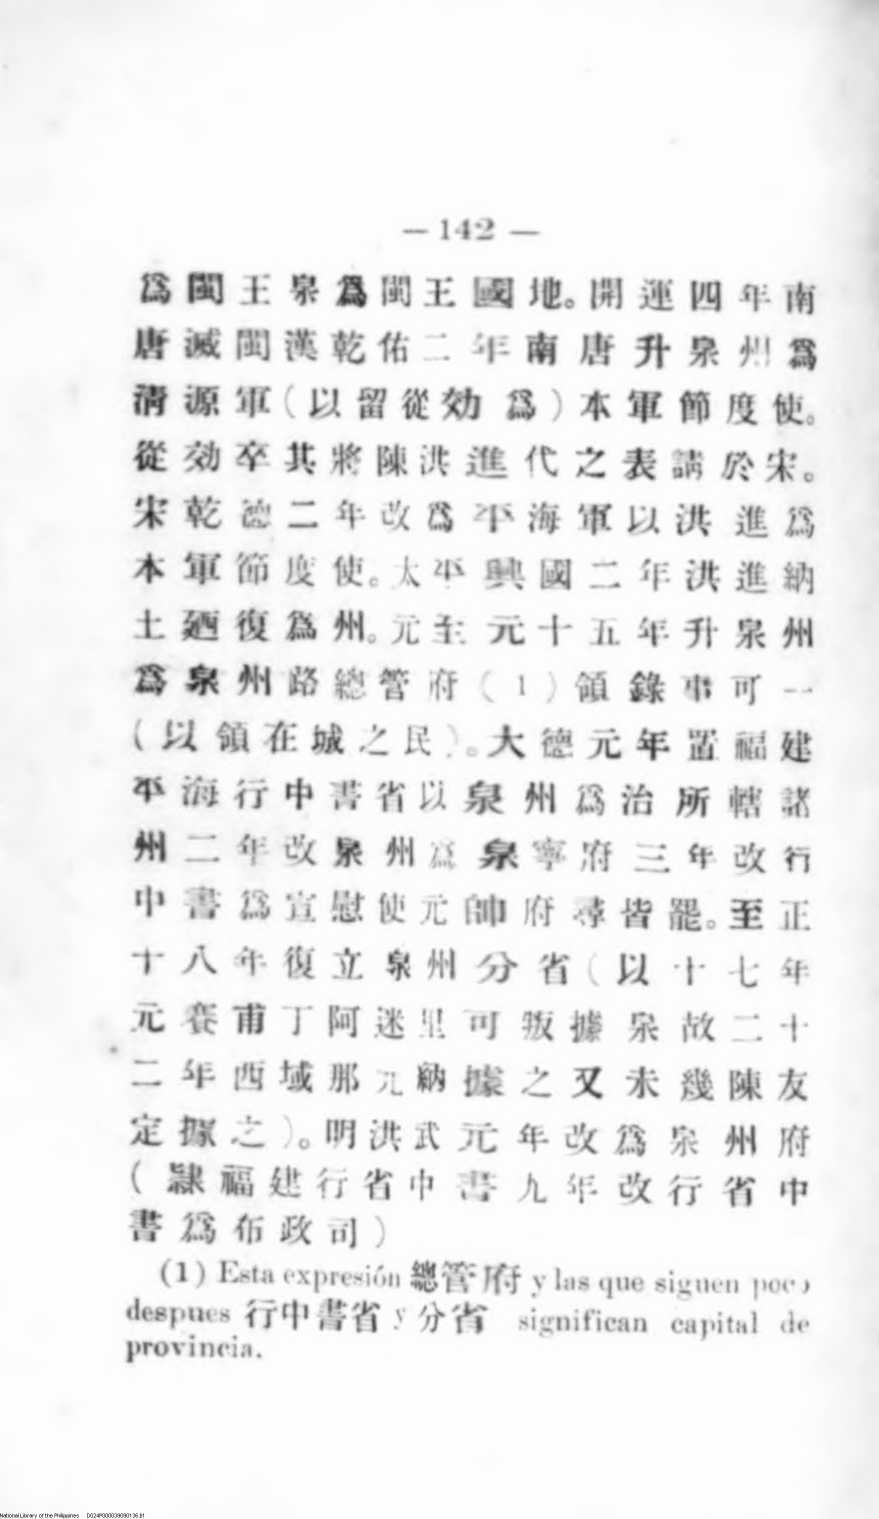 — 142 —
爲閩王泉爲閩王國地。開運四年南
唐滅閩漢乾佑二年南唐升泉州爲
清源軍(以留從効爲)本軍節度使。
從効卒其將陳洪進代之表請於宋。
宋乾德二年改爲平海軍以洪進爲
本軍節度使。太平興國二年洪進納
土廼復爲州。元至元十五年升泉州
爲泉州路總管府(1)領錄事可一
(以領在城之民)。大德元年置福建
平海行中書省以泉州爲治所轄諸
州二年改泉州爲泉寧府三年改行
中書爲宣慰使元帥府尋皆罷。至正
十八年復立泉州分省(以十七年
元賽甫丁阿迷里可叛據泉故二十
二年西域那兀納據之又未幾陳友
定據之)。明洪武元年改爲泉州府
(隸福建行省中書九年改行省中
書爲布政司)
(1) Esta expresión 總管府 y las que siguen poco
despues 行中書省 y 分省 significan capital de
provincia.
National Library of the Philippines